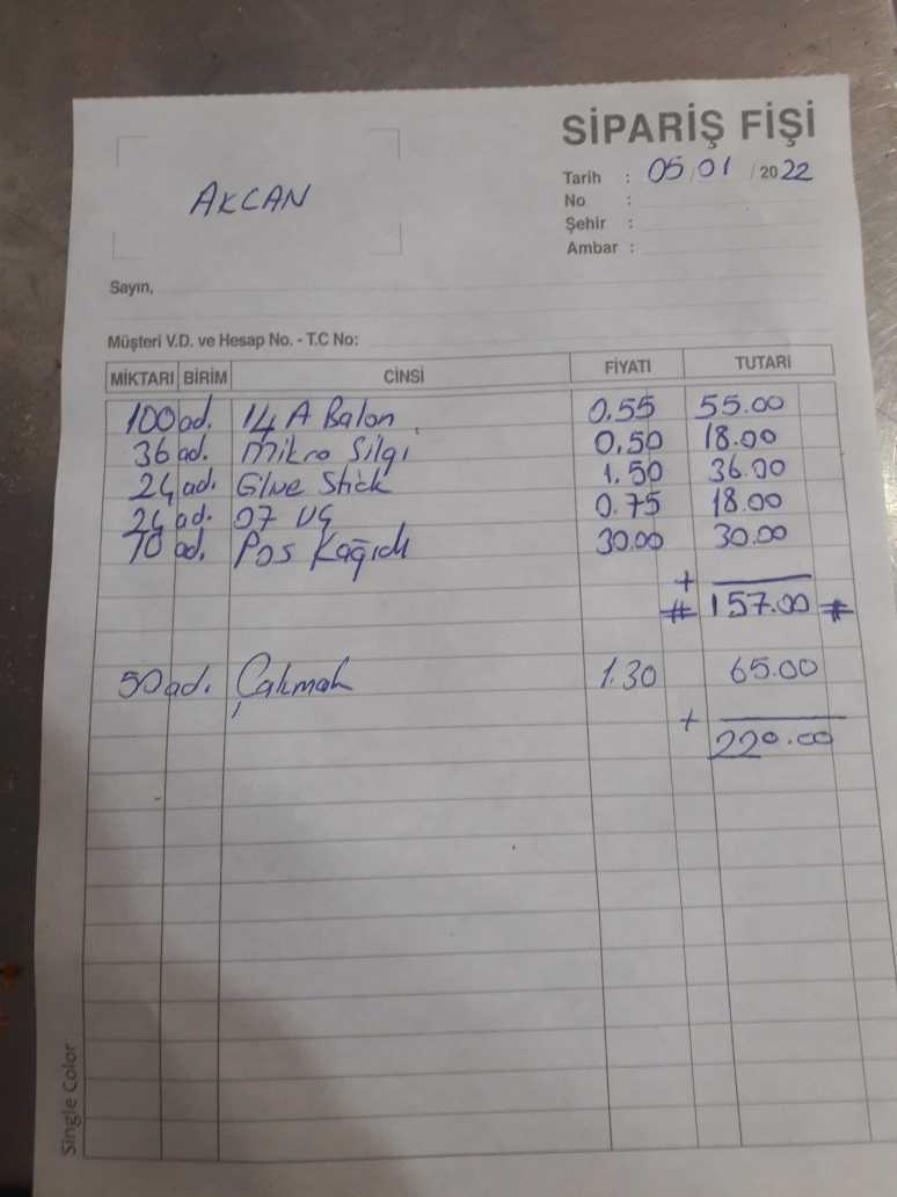 SİPARİŞ FİŞİ
AKCAN
Tarih : 05/01/2022
No :
Şehir :
Ambar :
Sayın,
Müşteri V.D. ve Hesap No. - T.C No:
MİKTARI BİRİM CİNSİ FİYATI TUTARI
100 ad. 14 A Balon 0.55 55.00
36 ad. Mikro Silgi 0.50 18.00
24 ad. Glue Stick 1.50 36.00
24 ad. 07 UÇ 0.75 18.00
10 ad. Pos Kağıdı 30.00 30.00
+
# 157.00 #
50 ad. Çakmak 1.30 65.00
+
220.00
Single Color